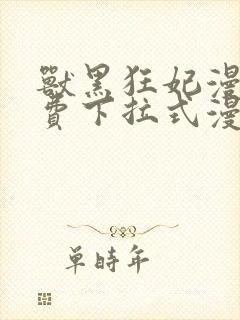 獸黑狂妃漫
費下拉式漫
單時年